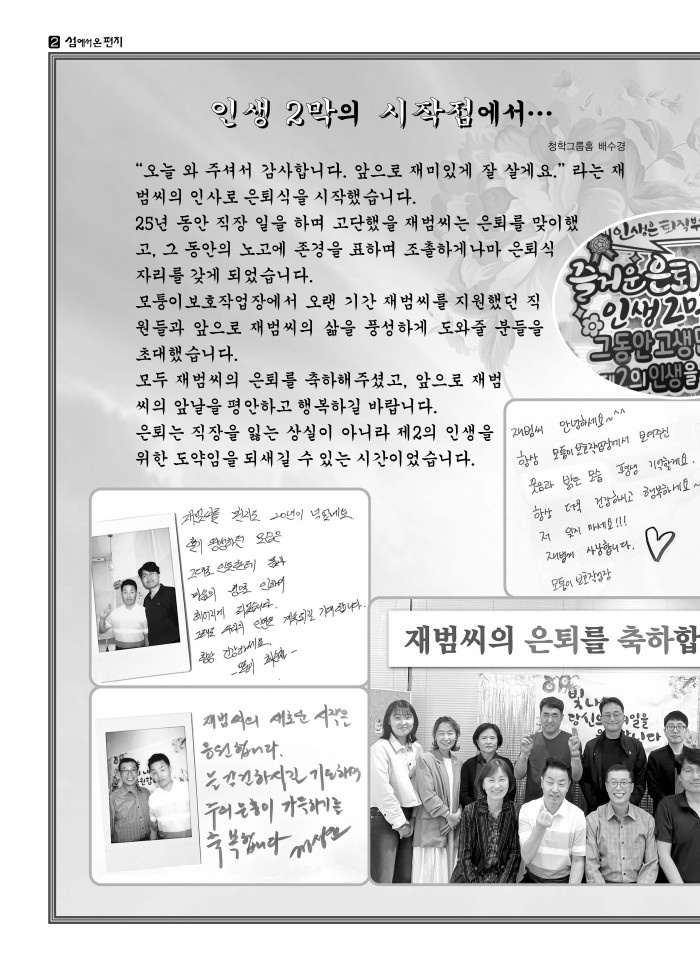 2 섬에서 온 편지
인생 2막의 시작점에서…
청학그룹홈 배수경
“오늘 와 주셔서 감사합니다. 앞으로 재미있게 잘 살게요.” 라는 재
범씨의 인사로 은퇴식을 시작했습니다.
25년 동안 직장 일을 하며 고단했을 재범씨는 은퇴를 맞이했
고, 그 동안의 노고에 존경을 표하며 조촐하게나마 은퇴식
자리를 갖게 되었습니다.
모퉁이보호작업장에서 오랜 기간 재범씨를 지원했던 직
원들과 앞으로 재범씨의 삶을 풍성하게 도와줄 분들을
초대했습니다.
모두 재범씨의 은퇴를 축하해주셨고, 앞으로 재범
씨의 앞날을 평안하고 행복하길 바랍니다.
은퇴는 직장을 잃는 상실이 아니라 제2의 인생을
위한 도약임을 되새길 수 있는 시간이었습니다.
인생은 퇴직부
즐거운 은퇴
인생 2막
그동안 고생
제2의 인생을
재범씨 안녕하세요~^^
항상 모퉁이보호작업장에서 보여주신
웃음과 밝은 모습 평생 기억할게요.
항상 더욱 건강하시고 행복하세요~
저 잊지 마세요!!!
재범씨 사랑합니다.
모퉁이보호작업장
재범씨를 만난지도 20년이 넘었네요
그대로 인듯한데
헤어지게 되었습니다.
항상 건강하세요
재범씨의 새로운 시작은
응원합니다.
늘 건강하시길 기도하며
주의 은총이 가득하기를
축복합니다
재범씨의 은퇴를 축하합
빛나
당신의 내일을